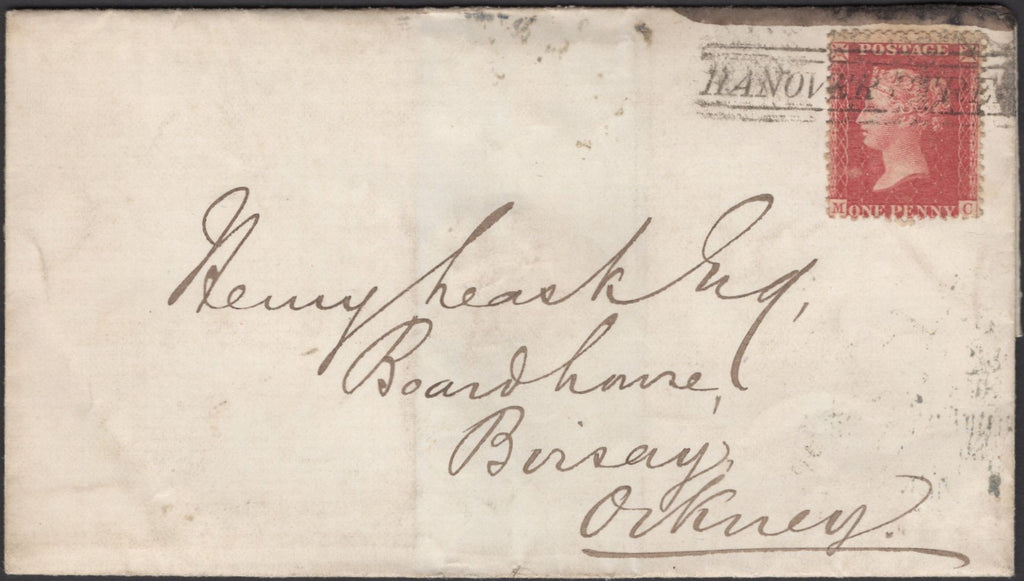 POSTAGE
HANOVER STREET
M ONE PENNY C
Henry Leask Esq,
Boardhouse,
Birsay,
Orkney.